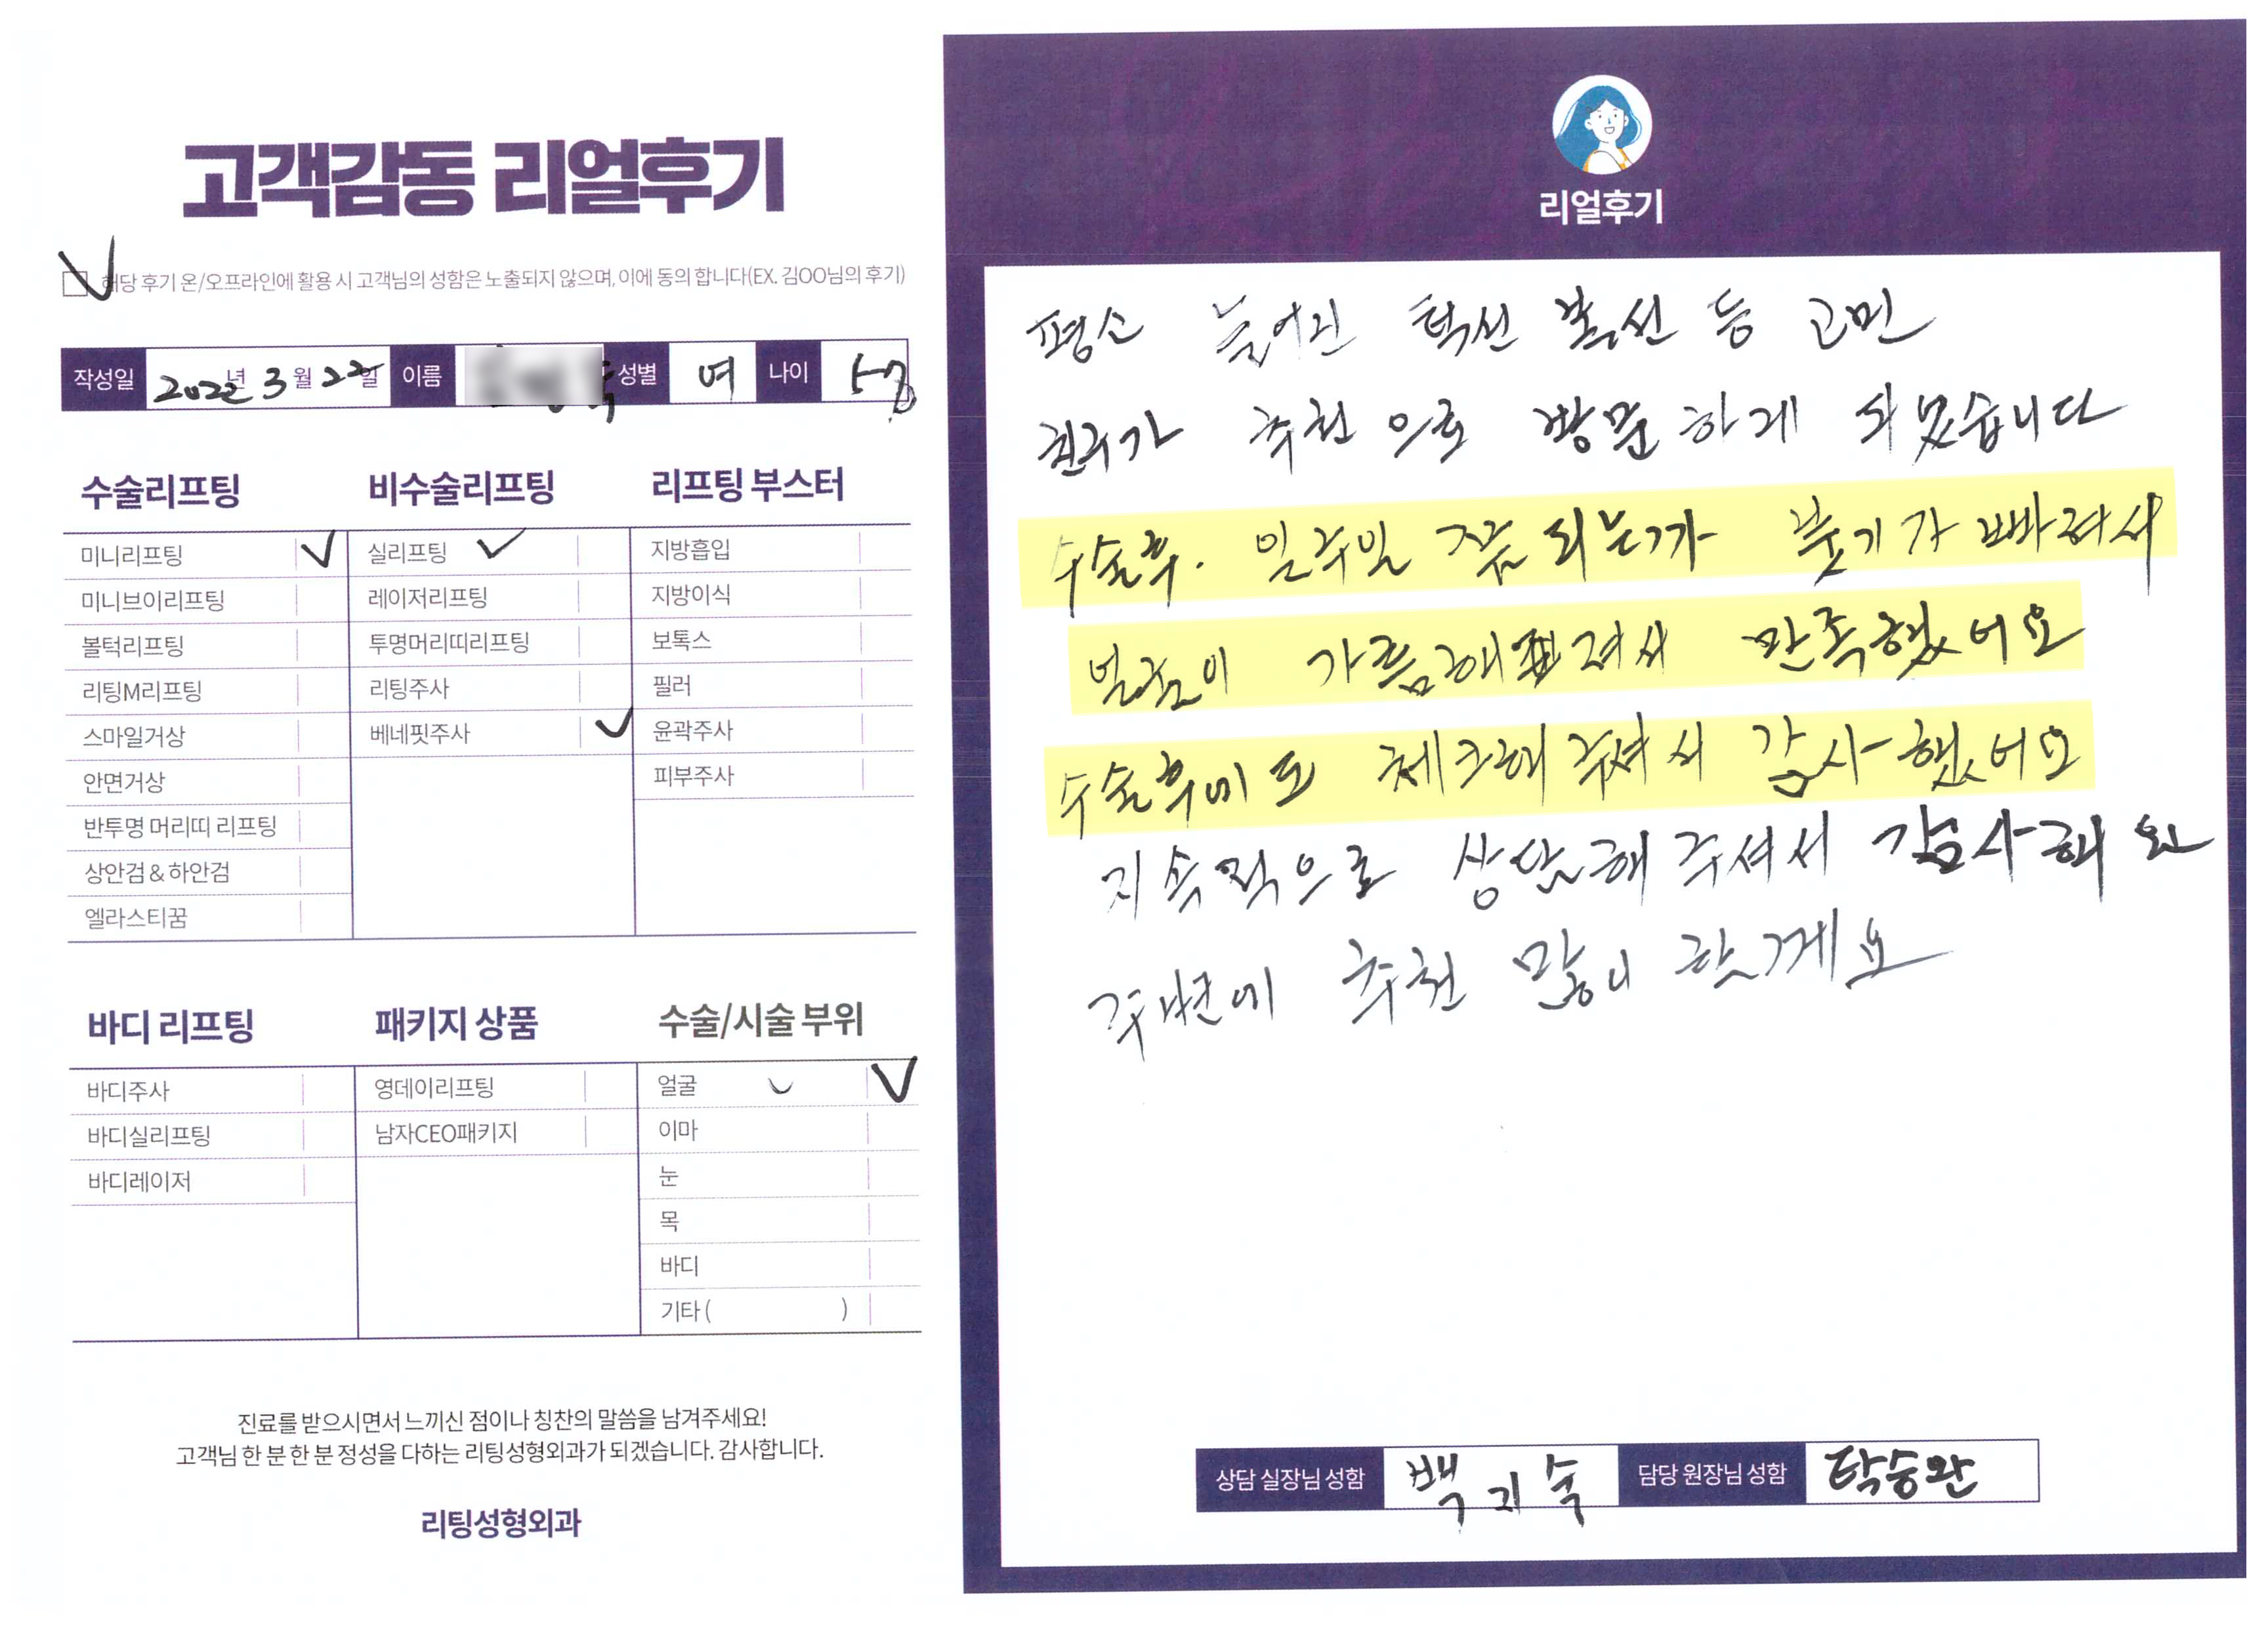 고객감동 리얼후기
해당 후기 온/오프라인에 활용 시 고객님의 성함은 노출되지 않으며, 이에 동의 합니다(EX. 김OO님의 후기)
작성일 2022년 3월 22일 이름 성별 여 나이
수술리프팅 비수술리프팅 리프팅 부스터
미니리프팅 실리프팅 지방흡입
미니브이리프팅 레이저리프팅 지방이식
볼턱리프팅 투명머리띠리프팅 보톡스
리팅M리프팅 리팅주사 필러
스마일거상 베네핏주사 윤곽주사
안면거상 피부주사
반투명 머리띠 리프팅
상안검 & 하안검
엘라스티꿈
바디 리프팅 패키지 상품 수술/시술 부위
바디주사 영데이리프팅 얼굴
바디실리프팅 남자CEO패키지 이마
바디레이저 눈
목
바디
기타 ( )
진료를 받으시면서 느끼신 점이나 칭찬의 말씀을 남겨주세요!
고객님 한 분 한 분 정성을 다하는 리팅성형외과가 되겠습니다. 감사합니다.
리팅성형외과
리얼후기
평소 늘어진 턱선 볼선 등 고민
친구가 추천으로 방문하게 되었습니다
수술후. 일주일 쯤 되는가 붓기가 빠져서
얼굴이 갸름해져서 만족했어요
수술후에도 체크해주셔서 감사했어요
지속적으로 상담해주셔서 감사해요
주변에 추천 많이 할께요
상담 실장님 성함 백지숙 담당 원장님 성함 탁승완